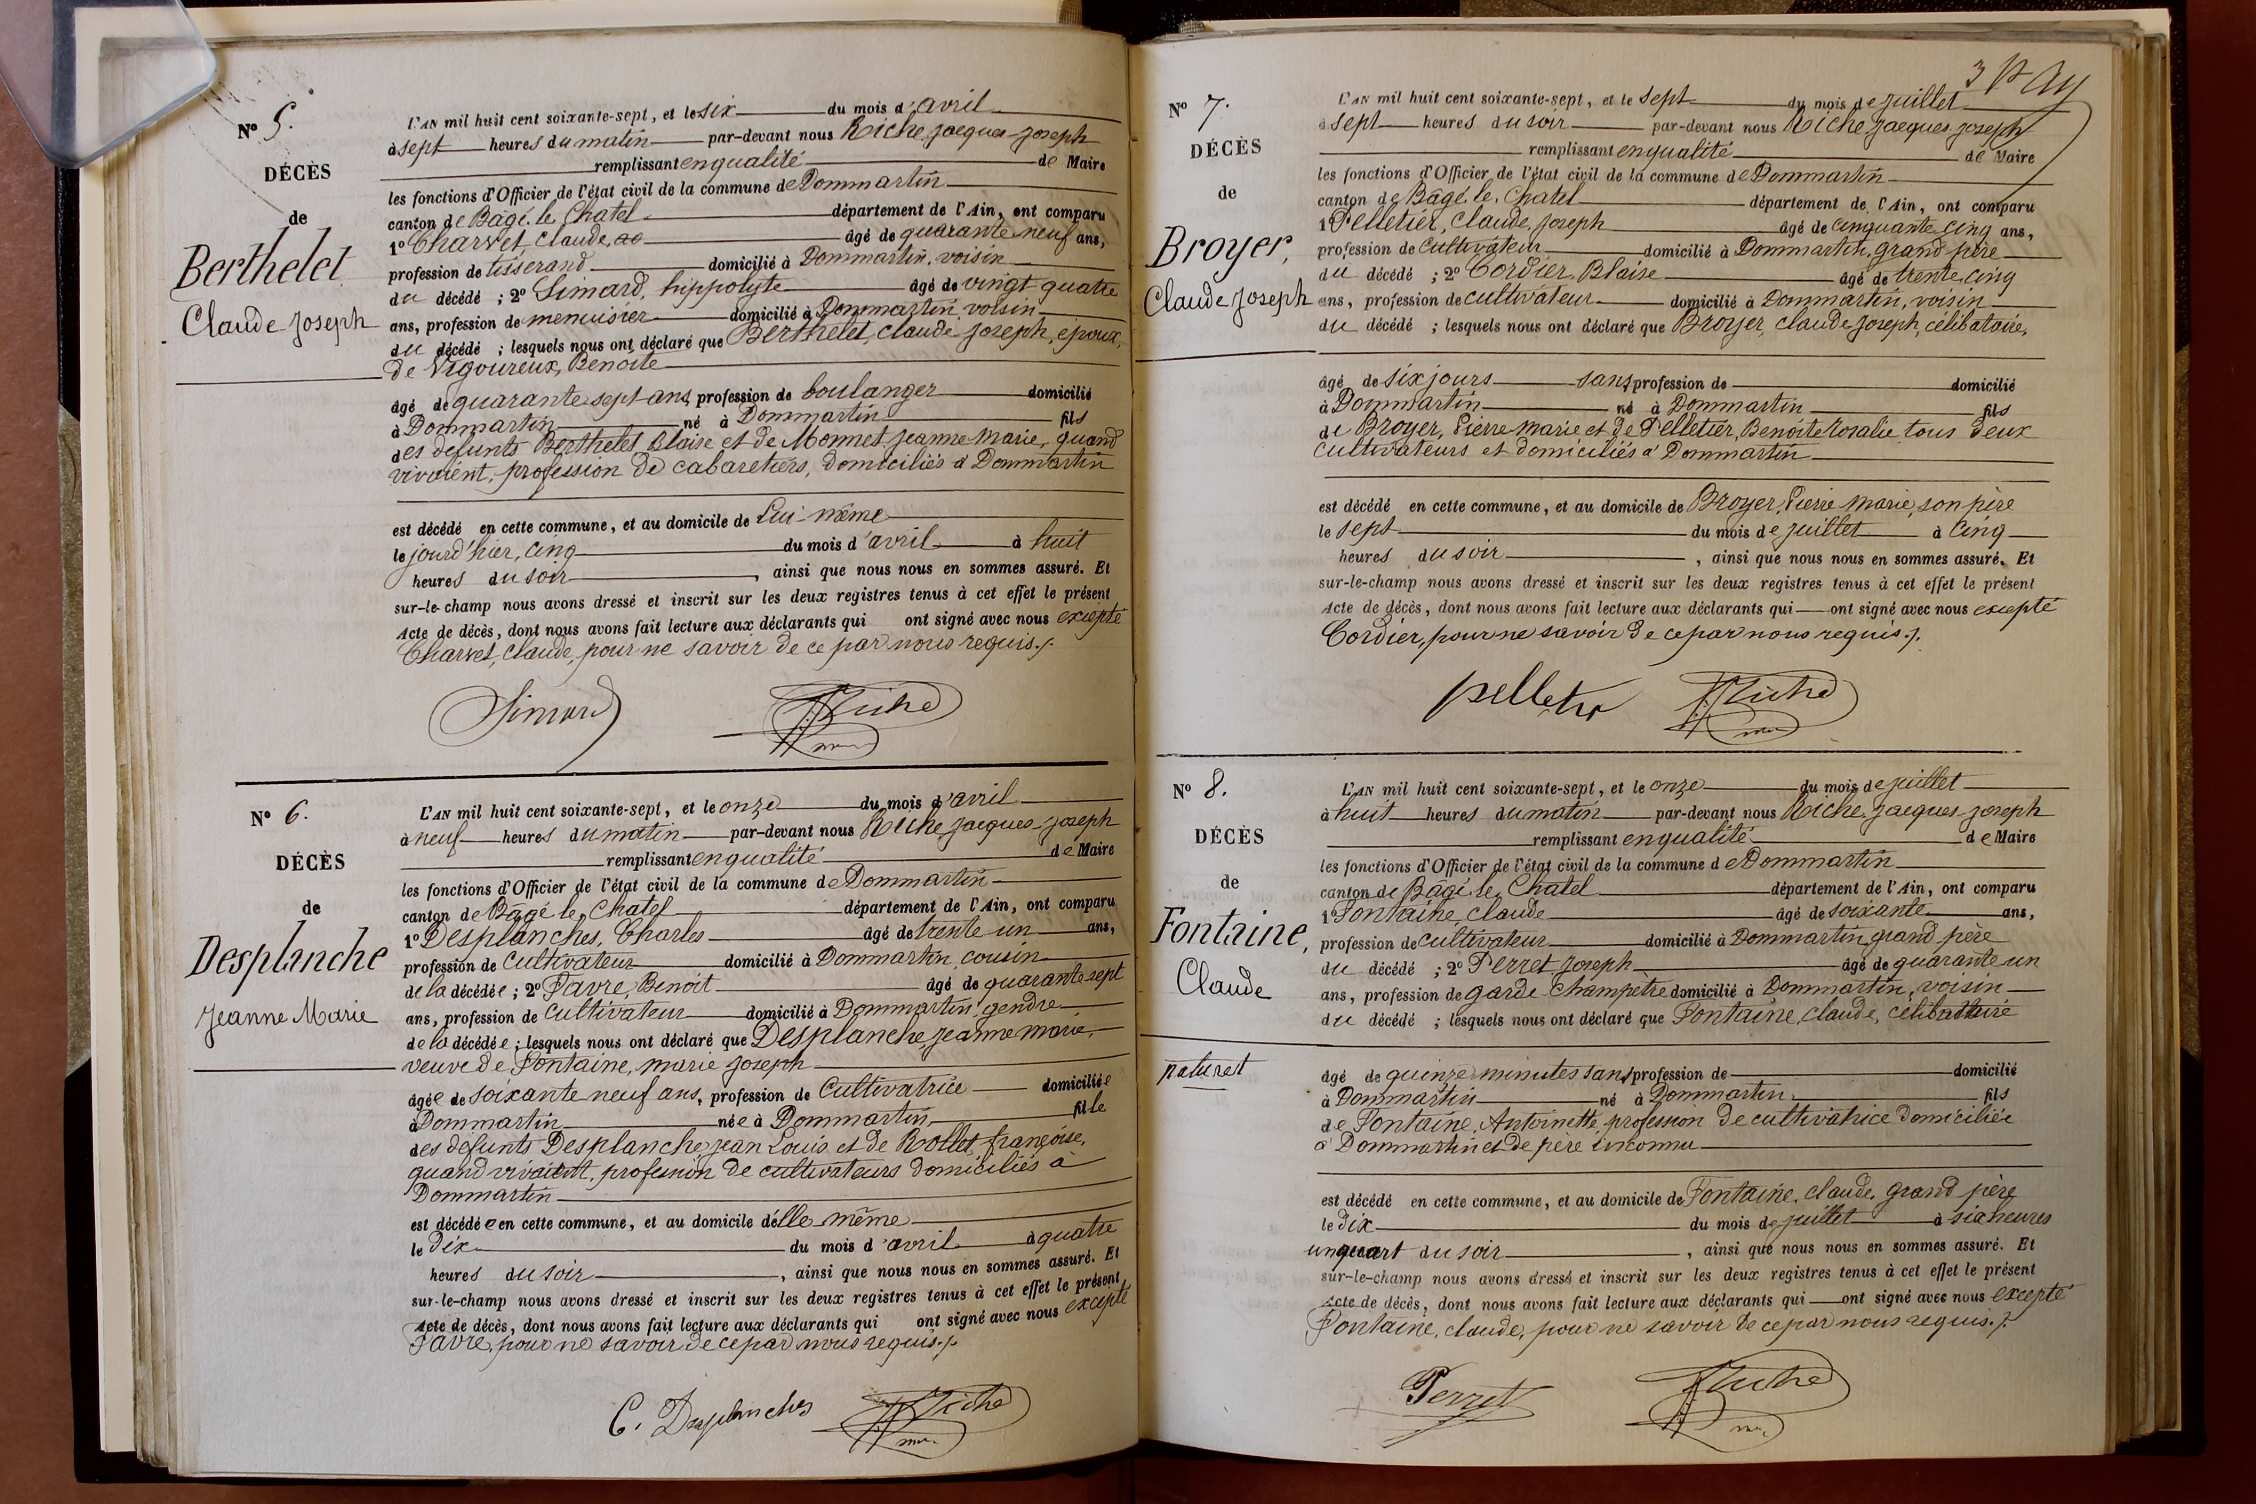 N° 5.
DÉCÈS
de
Berthelet
Claude Joseph
L'AN mil huit cent soixante-sept, et le six du mois d'avril
à sept heures du matin par-devant nous Riche, Jacques Joseph
remplissant en qualité de Maire
les fonctions d'Officier de l'état civil de la commune de Dommartin
canton de Bâgé-le-Chatel département de l'Ain, ont comparu
1° Charvet, Claude, âgé de quarante neuf ans,
profession de tisserand domicilié à Dommartin, voisin
du décédé ; 2° Simard, hippolyte âgé de vingt quatre
ans, profession de menuisier domicilié à Dommartin, voisin
du décédé ; lesquels nous ont déclaré que Berthelet, Claude Joseph, époux
de Vigoureux, Benoite
âgé de quarante sept ans, profession de boulanger domicilié
à Dommartin né à Dommartin fils
des défunts Berthelet Blaise et de Monnet, Jeanne Marie, quand
vivaient, profession de cabaretiers, domiciliés à Dommartin
est décédé en cette commune, et au domicile de Lui-même
le jourd'hier, cinq du mois d'avril à huit
heures du soir, ainsi que nous nous en sommes assuré. Et
sur-le-champ nous avons dressé et inscrit sur les deux registres tenus à cet effet le présent
Acte de décès, dont nous avons fait lecture aux déclarants qui ont signé avec nous excepté
Charvet, Claude, pour ne savoir de ce par nous requis ./.
Simard Riche
N° 6.
DÉCÈS
de
Desplanche
Jeanne Marie
L'AN mil huit cent soixante-sept, et le onze du mois d'avril
à neuf heures du matin par-devant nous Riche, Jacques Joseph
remplissant en qualité de Maire
les fonctions d'Officier de l'état civil de la commune de Dommartin
canton de Bâgé le Chatel département de l'Ain, ont comparu
1° Desplanches, Charles âgé de trente un ans,
profession de cultivateur domicilié à Dommartin, cousin
de la décédée ; 2° Favre, Benoit âgé de quarante sept
ans, profession de cultivateur domicilié à Dommartin, gendre
de la décédée ; lesquels nous ont déclaré que Desplanche, Jeanne Marie,
veuve de Fontaine, marie Joseph
âgée de soixante neuf ans, profession de Cultivatrice domiciliée
à Dommartin née à Dommartin fille
des défunts Desplanche, Jean Louis et de Rollet françoise,
quand vivaient, profession de cultivateurs domiciliés à
Dommartin
est décédée en cette commune, et au domicile d'elle même
le dix du mois d'avril à quatre
heures du soir, ainsi que nous nous en sommes assuré. Et
sur-le-champ nous avons dressé et inscrit sur les deux registres tenus à cet effet le présent
Acte de décès, dont nous avons fait lecture aux déclarants qui ont signé avec nous excepté
Favre, pour ne savoir de ce par nous requis ./.
C. Desplanches Riche
N° 7.
DÉCÈS
de
Broyer,
Claude Joseph
L'AN mil huit cent soixante-sept, et le sept du mois de juillet
à sept heures du soir par-devant nous Riche, Jacques Joseph
remplissant en qualité de Maire
les fonctions d'Officier de l'état civil de la commune de Dommartin
canton de Bâgé-le-Chatel département de l'Ain, ont comparu
1° Pelletier, Claude Joseph âgé de cinquante cinq ans,
profession de cultivateur domicilié à Dommartin, grand père
du décédé ; 2° Cordier, Blaise âgé de trente cinq
ans, profession de cultivateur domicilié à Dommartin, voisin
du décédé ; lesquels nous ont déclaré que Broyer, Claude Joseph, célibataire,
âgé de six jours sans profession de domicilié
à Dommartin né à Dommartin fils
de Broyer, Pierre Marie et de Pelletier, Benoîte Rosalie, tous deux
cultivateurs et domiciliés à Dommartin
est décédé en cette commune, et au domicile de Broyer, Pierre Marie, son père
le sept du mois de juillet à cinq
heures du soir, ainsi que nous nous en sommes assuré. Et
sur-le-champ nous avons dressé et inscrit sur les deux registres tenus à cet effet le présent
Acte de décès, dont nous avons fait lecture aux déclarants qui ont signé avec nous excepté
Cordier, pour ne savoir de ce par nous requis ./.
pelletier Riche
N° 8.
DÉCÈS
de
Fontaine,
Claude
naturel
L'AN mil huit cent soixante-sept, et le onze du mois de juillet
à huit heures du matin par-devant nous Riche, Jacques Joseph
remplissant en qualité de Maire
les fonctions d'Officier de l'état civil de la commune de Dommartin
canton de Bâgé-le-Chatel département de l'Ain, ont comparu
1° Fontaine, Claude âgé de soixante ans,
profession de cultivateur domicilié à Dommartin, grand père
du décédé ; 2° Perret, Joseph âgé de quarante un
ans, profession de garde-champêtre domicilié à Dommartin, voisin
du décédé ; lesquels nous ont déclaré que Fontaine, Claude, célibataire
âgé de quinze minutes sans profession de domicilié
à Dommartin né à Dommartin fils
de Fontaine, Antoinette, profession de cultivatrice domiciliée
à Dommartin et de père inconnu
est décédé en cette commune, et au domicile de Fontaine, Claude, grand père
le dix du mois de juillet à six heures
un quart du soir, ainsi que nous nous en sommes assuré. Et
sur-le-champ nous avons dressé et inscrit sur les deux registres tenus à cet effet le présent
Acte de décès, dont nous avons fait lecture aux déclarants qui ont signé avec nous excepté
Fontaine, Claude, pour ne savoir de ce par nous requis ./.
Perret Riche